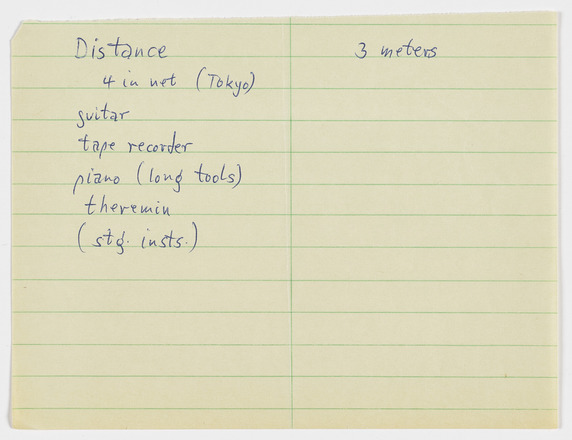 Distance 3 meters
4 in net (Tokyo)
guitar
tape recorder
piano (long tools)
theremin
(stg. insts.)